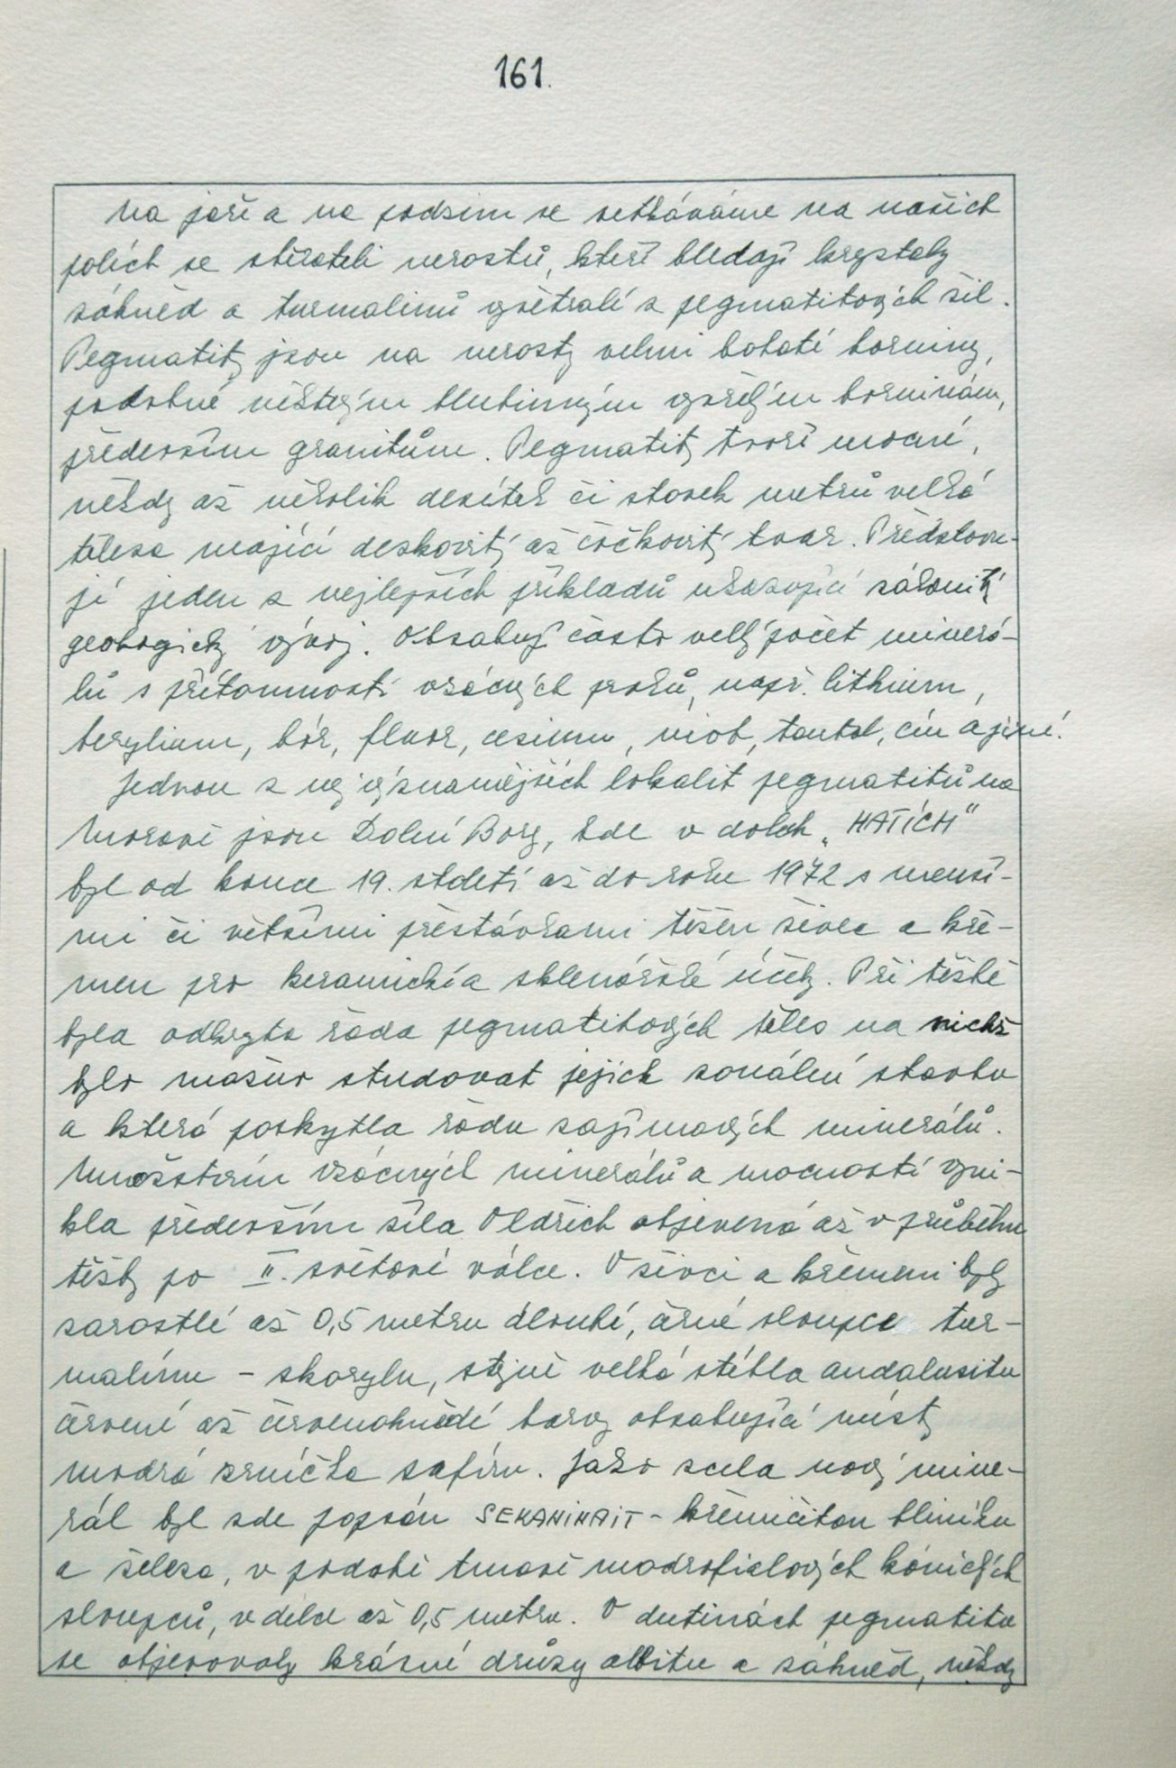 161.
Na jaře a na podzim se setkáváme na našich
polích se sběrateli nerostů, kteří hledají krystaly
záhněd a turmalinů zvětralé z pegmatitových žil.
Pegmatity jsou na nerosty velmi bohaté horniny,
podobné některým hlubinným vyvřelým horninám,
především granitům. Pegmatity tvoří mocné,
někdy až několik desítek či stovek metrů velká
tělesa mající deskovitý až čočkovitý tvar. Představu-
jí jeden z nejlepších příkladů ukazující zákonitý
geologický vývoj. Obsahují často velký počet minerá-
lů s přítomností vzácných prvků, např. lithium,
berylium, bór, fluor, cesium, niob, tantal, cín a jiné.
Jednou z nejvýznamnějších lokalit pegmatitů na
Moravě jsou Dolní Bory, kde v dolech „HATÍCH"
byl od konce 19. století až do roku 1972 s menší-
mi či většími přestávkami těžen živec a kře-
men pro keramické a sklenářské účely. Při těžbě
byla odkryta řada pegmatitových těles na nichž
bylo možno studovat jejich zonální stavbu
a která poskytla řadu zajímavých minerálů.
Množstvím vzácných minerálů a mocností vyni-
kla především žíla Oldřich objevená až v průběhu
těžby po II. světové válce. V živci a křemeni byly
zarostlé až 0,5 metru dlouhé, černé sloupce tur-
malínu - skorylu, stejně velká stébla andalusitu
červené až červenohnědé barvy obsahující místy
modrá zrníčka safíru. Jako zcela nový mine-
rál byl zde popsán SEKANINAIT - křemičitan hliníku
a železa, v podobě tmavě modrofialových kónických
sloupců, v délce až 0,5 metru. V dutinách pegmatitu
se objevovaly krásné drůzy albitu a záhněd, někdy